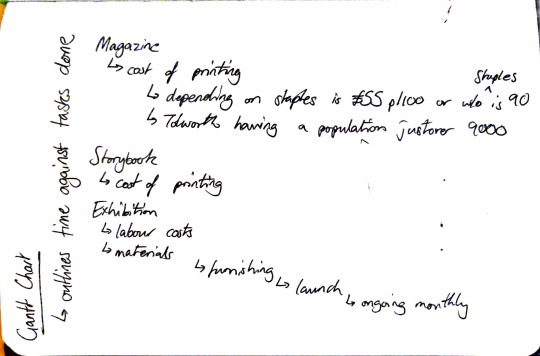 Magazine
↳ cost of printing
↳ depending on staples is £55 p/100 or w/o staples is 90
↳ Tdworth having a population just over 9000
Storybook
↳ cost of printing
Exhibition
↳ labour costs
↳ materials
↳ furnishing ↳ launch ↳ ongoing monthly
Gantt Chart
↳ outlines time against tasks done